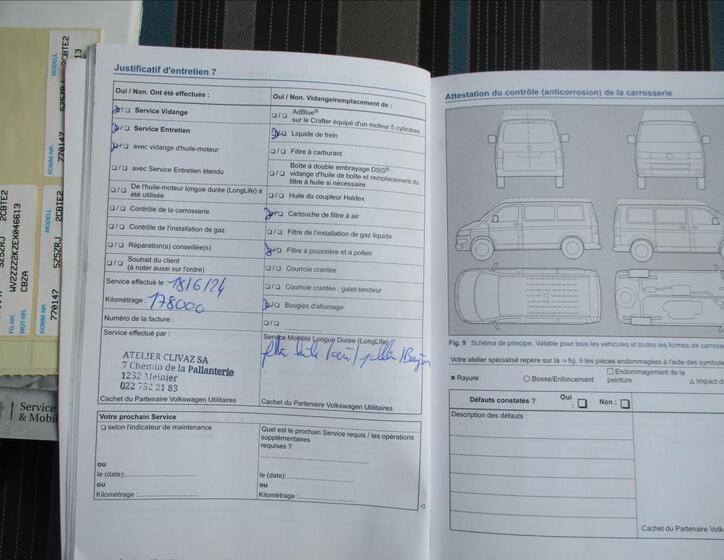 Justificatif d'entretien 7
Oui / Non. Ont été effectués :
Service Vidange
Service Entretien
avec vidange d'huile-moteur
avec Service Entretien étendu
De l'huile-moteur longue durée (LongLife) a été utilisée
Contrôle de la carrosserie
Contrôle de l'installation de gaz
Réparation(s) conseillée(s)
Souhait du client
(à noter aussi sur l'ordre)
Service effectué le : 18/6/24
Kilométrage : 178000
Numéro de la facture :
Service effectué par :
ATELIER CLIVAZ SA
7 Chemin de la Pallanterie
1252 Meinier
022 752 21 83
Cachet du Partenaire Volkswagen Utilitaires
Oui / Non. Vidange/remplacement de :
AdBlue®
sur le Crafter équipé d'un moteur 5 cylindres
Liquide de frein
Filtre à carburant
Boîte à double embrayage DSG® :
vidange d'huile de boîte et remplacement du
filtre à huile si nécessaire
Huile du coupleur Haldex
Cartouche de filtre à air
Filtre de l'installation de gaz liquide
Filtre à poussière et à pollen
Courroie crantée
Courroie crantée : galet-tendeur
Bougies d'allumage
Service Mobilité Longue Durée (LongLife)
Cachet du Partenaire Volkswagen Utilitaires
Votre prochain Service
selon l'indicateur de maintenance
ou
le (date):
ou
Kilométrage :
Quel est le prochain Service requis / les opérations
supplémentaires
requises ?
ou
le (date):
ou
Kilométrage :
Attestation du contrôle (anticorrosion) de la carrosserie
Fig. 9 Schéma de principe. Valable pour tous les véhicules et toutes les formes de
Votre atelier spécialisé repère sur la fig. 9 les pièces endommagées à l'aide des
Rayure
Bosse/Enfoncement
Endommagement de la
peinture
Impact
Défauts constatés ?
Oui :
Non :
Description des défauts :
Cachet du Partenaire
FG-NR. WV2ZZZ7KZEX046613
MOT-NR. CBZA
KOMM-NR. 770147
MODELL
5Z5ZRJ 2CBTE2
KOMM-NR. 770147
MODELL
Service
& Mobil